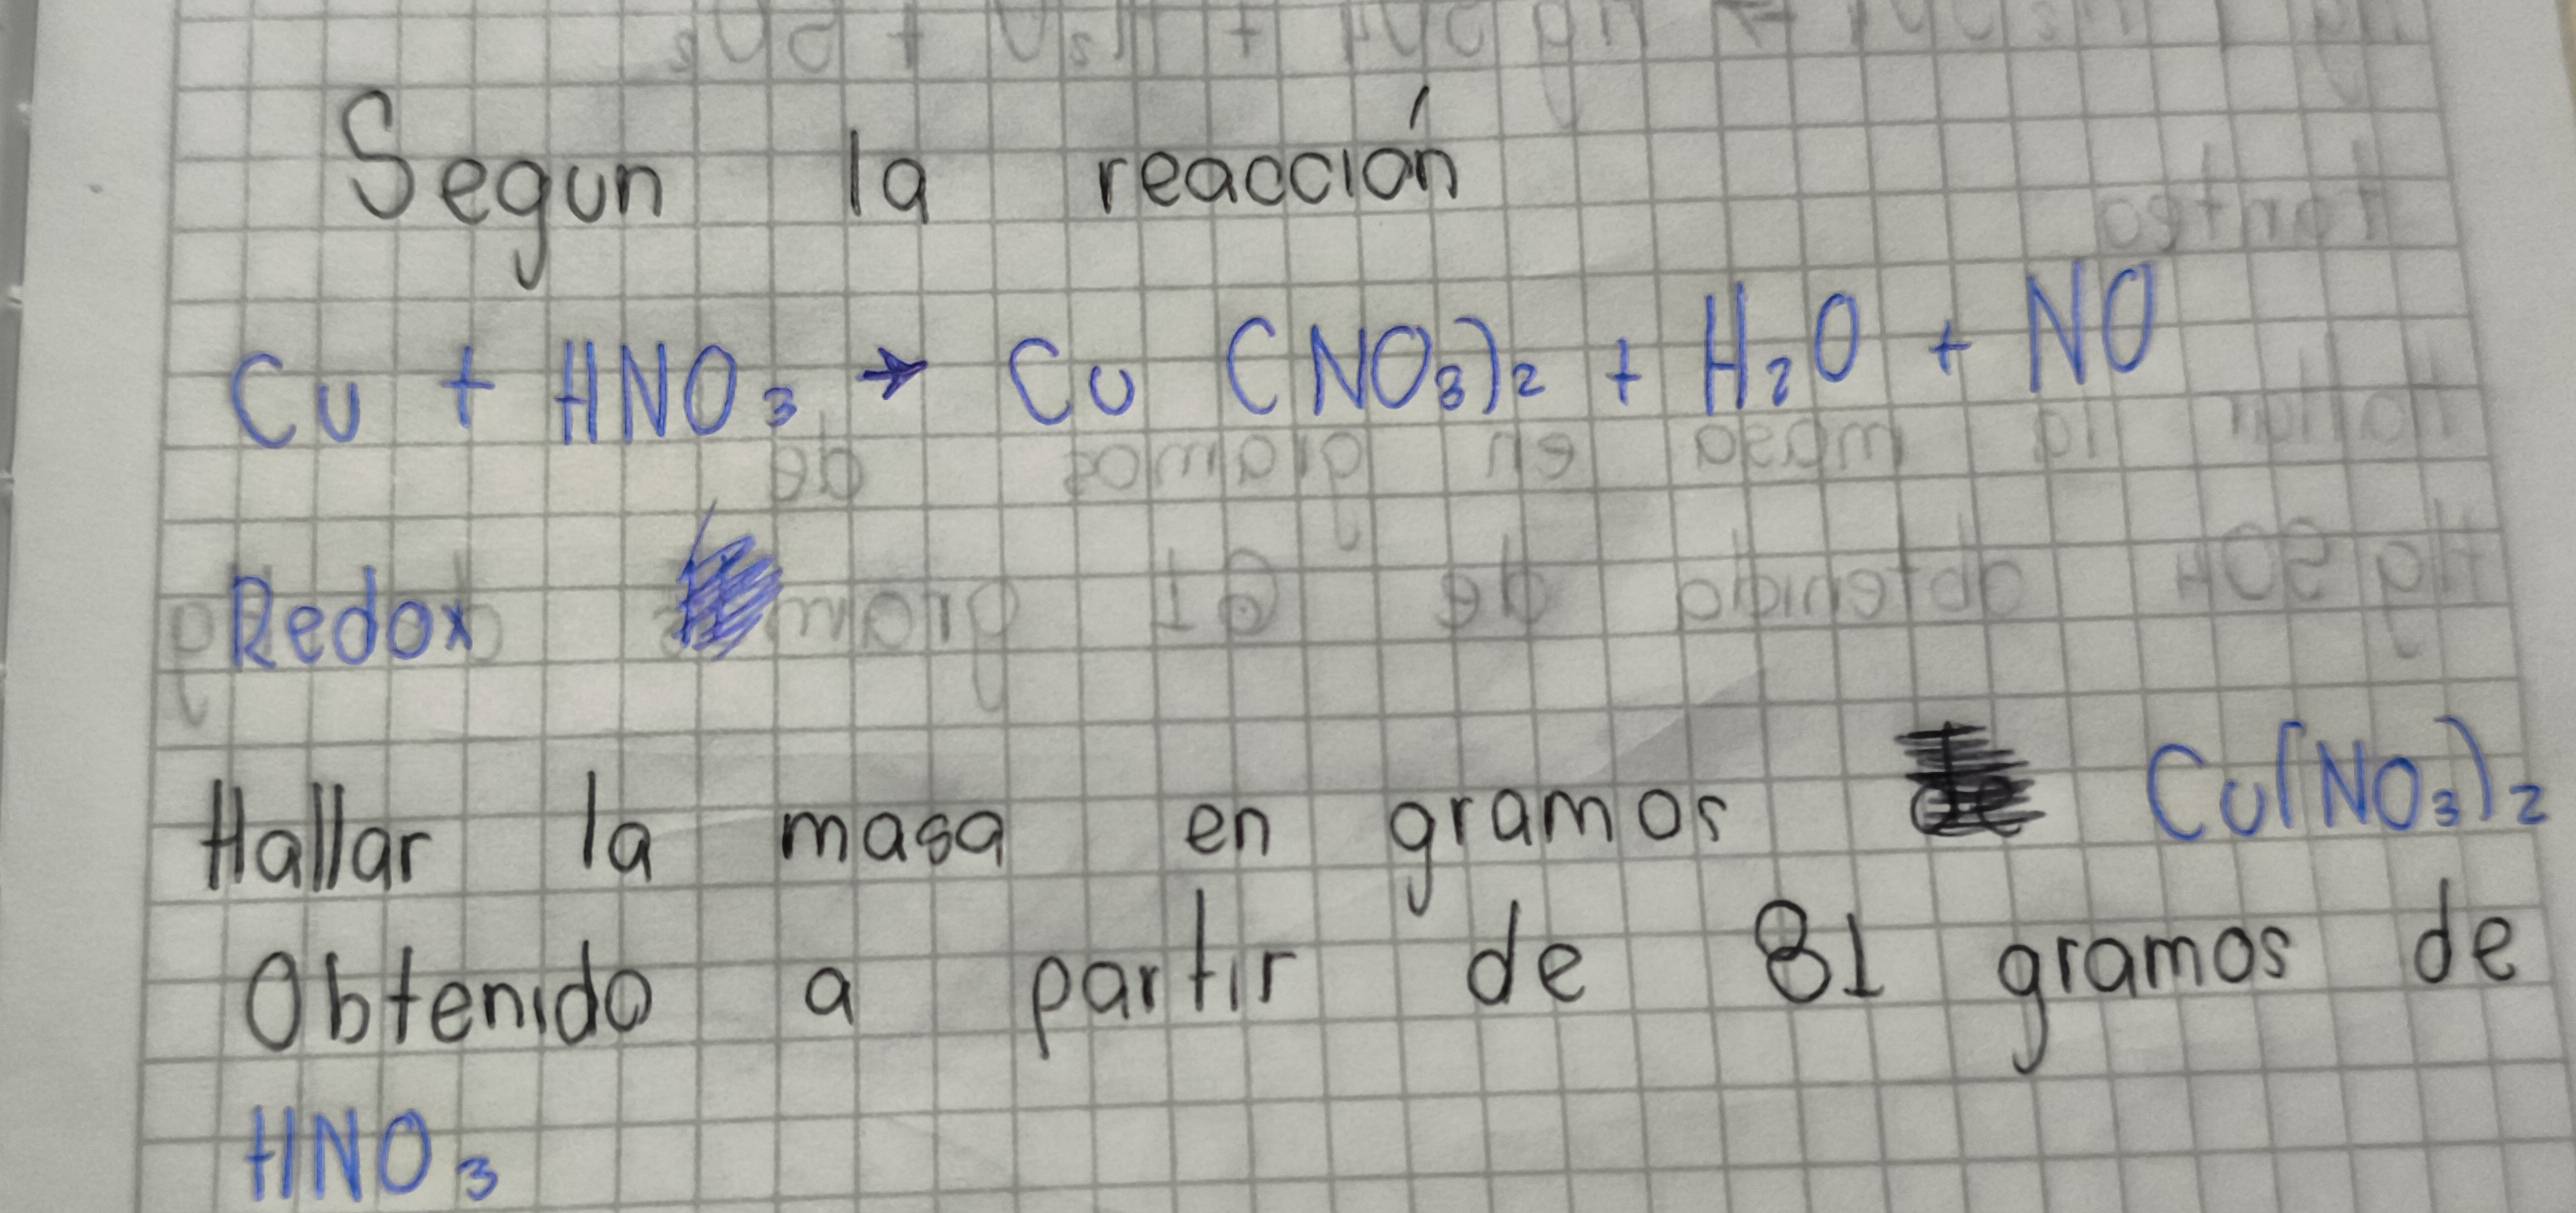 Segun la reacción
Cu + HNO₃ → Cu (NO₃)₂ + H₂O + NO
Redox
Hallar la masa en gramos Cu(NO₃)₂
Obtenido a partir de 81 gramos de
HNO₃